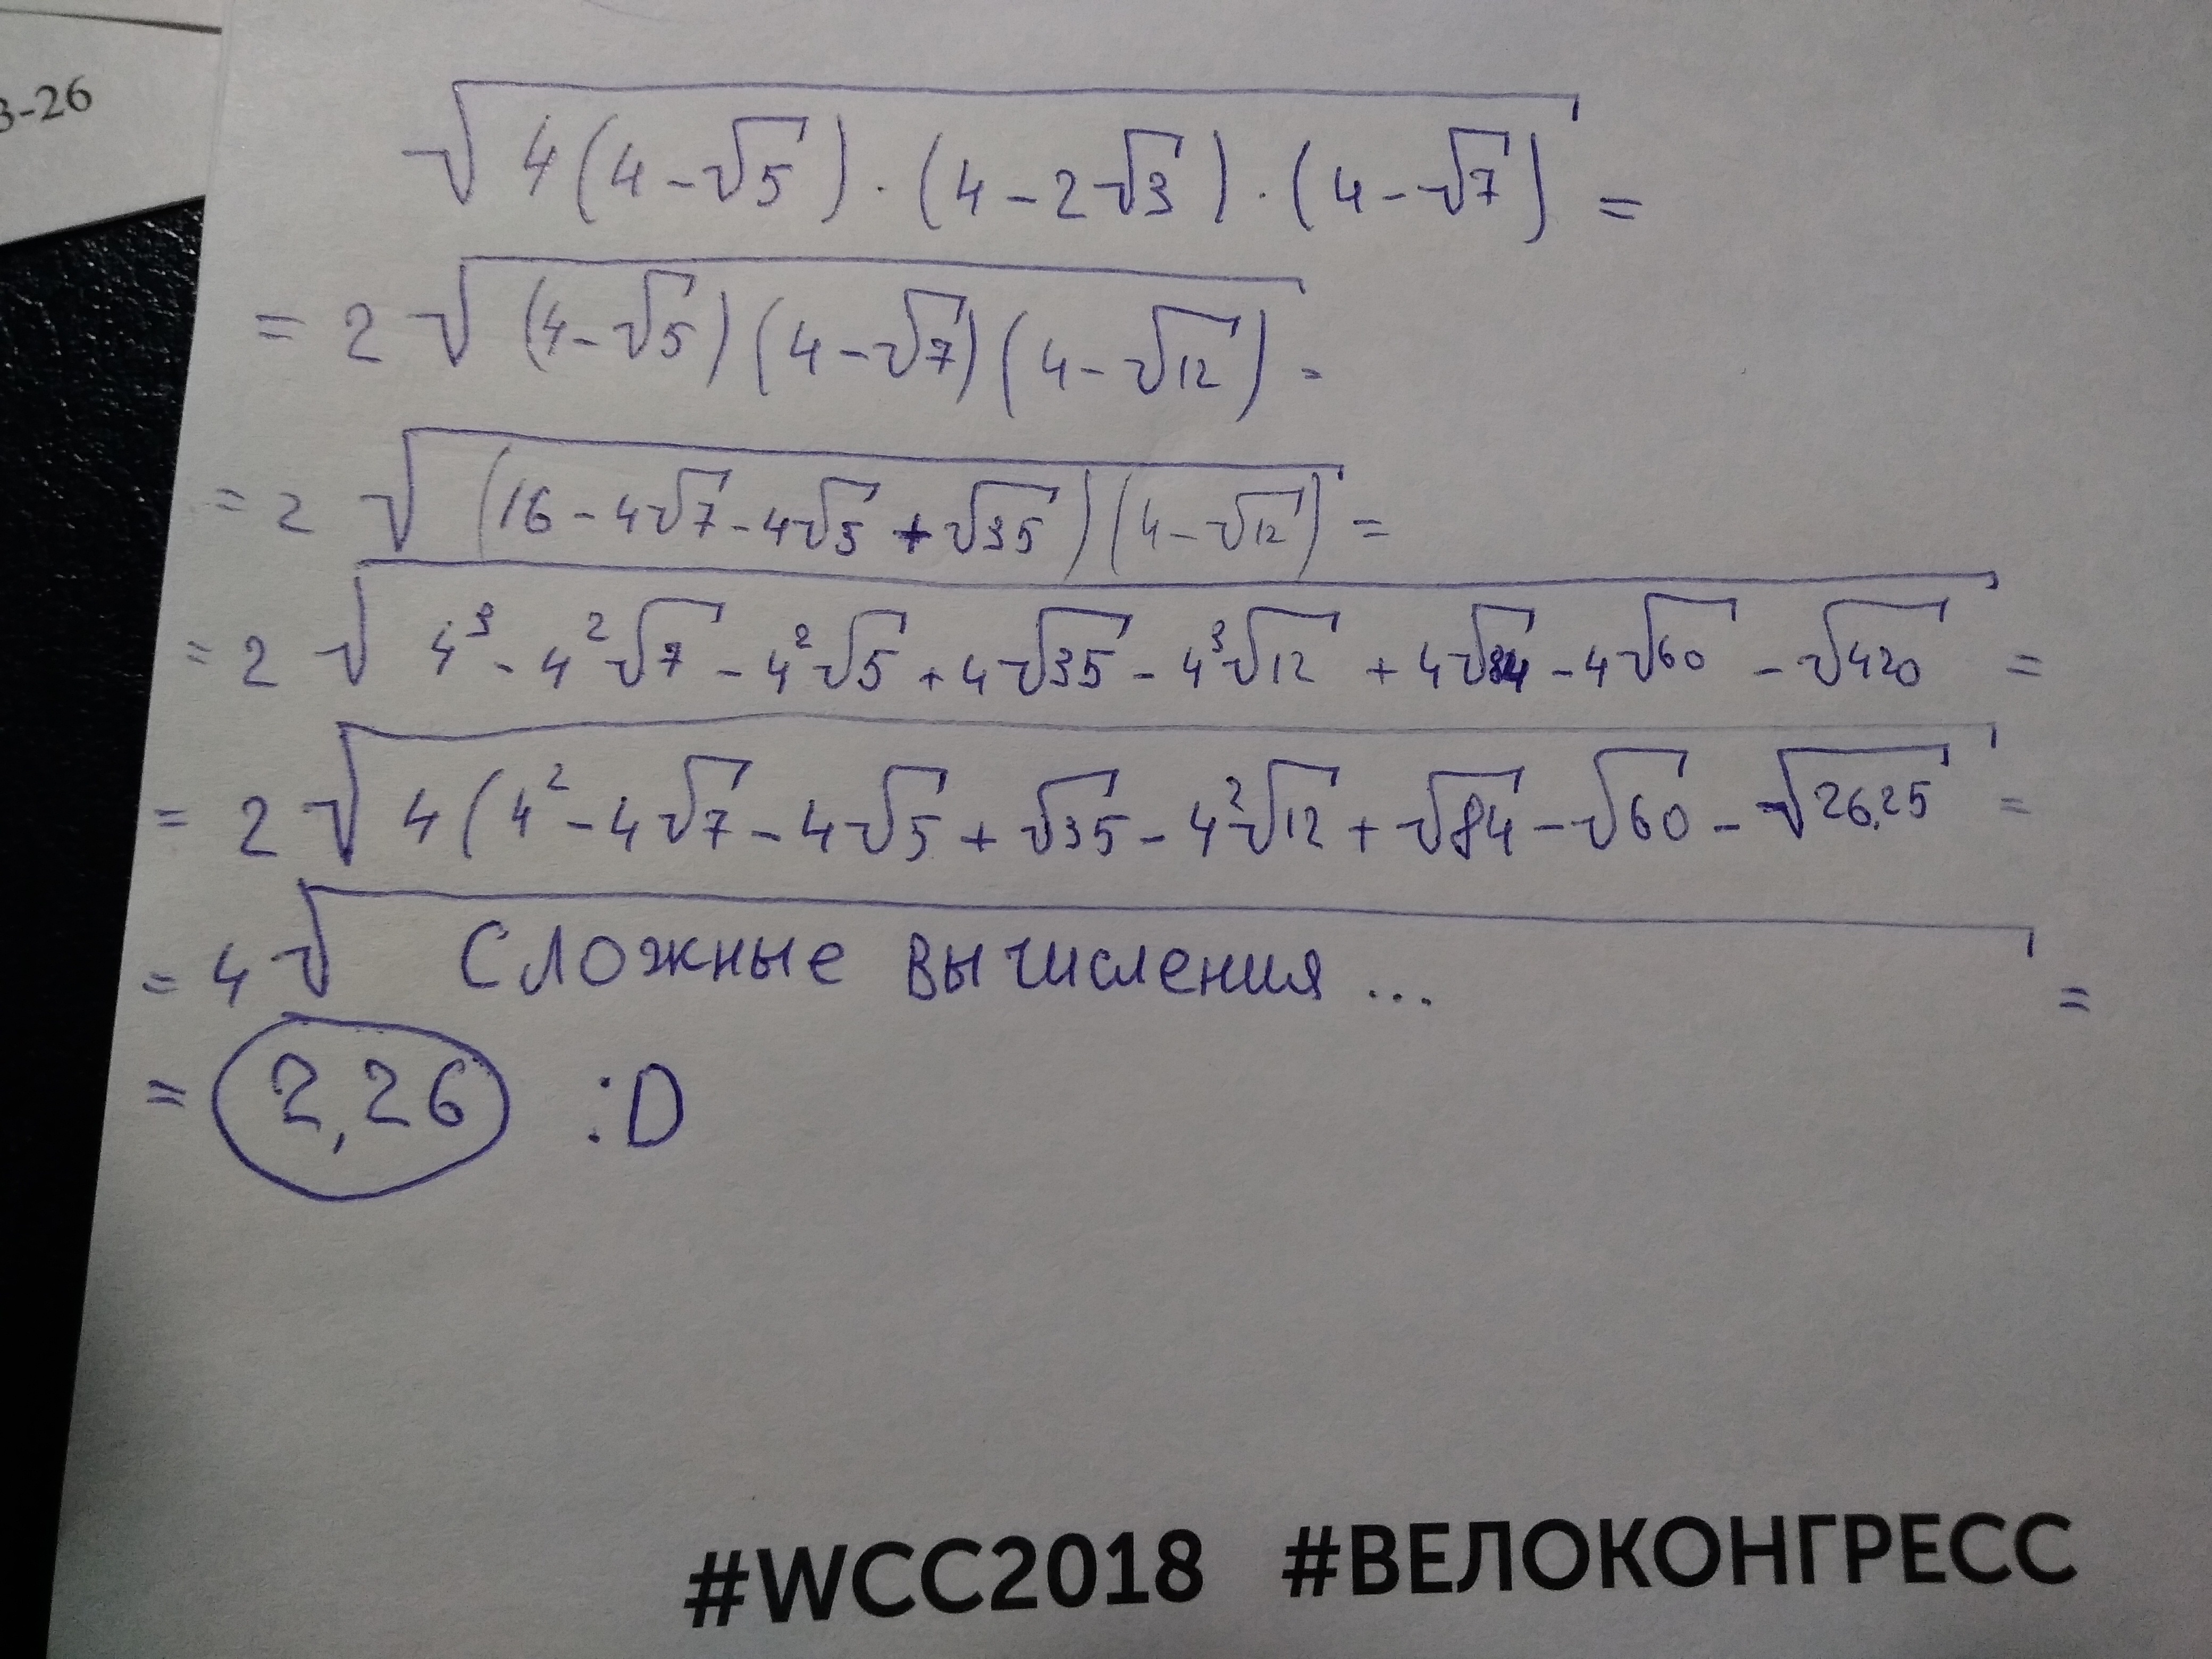 3-26
√4(4-√5)·(4-2√3)·(4-√7) =
= 2√(4-√5)(4-√7)(4-√12) =
= 2√(16-4√7-4√5+√35)(4-√12) =
= 2√4³-4²√7-4²√5+4√35-4³√12+4√84-4√60-√420 =
= 2√4(4²-4√7-4√5+√35-4²√12+√84-√60-√26,25 =
= 4√Сложные вычисления... =
= 2,26 :D
#WCC2018 #ВЕЛОКОНГРЕСС